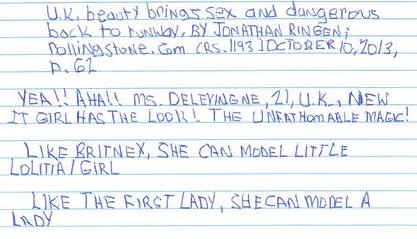 U.K. beauty brings sex and dangerous
back to runway, BY JONATHAN RINGEN;
Rollingstone.Com (RS.1193) OCTOBER 10, 2013,
p. 62
YEA!! AHA!! MS. DELEVINGNE, 21, U.K., NEW
IT GIRL HAS THE LOOK! THE UNFATHOMABLE MAGIC!
LIKE BRITNEX, SHE CAN MODEL LITTLE
LOLITIA/GIRL
LIKE THE FIRST LADY, SHE CAN MODEL A
LADY